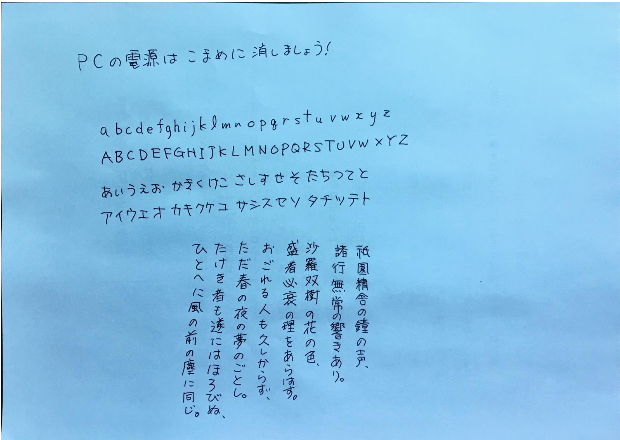 PCの電源はこまめに消しましょう!
abcdefghijklmnopqrstuvwxyz
ABCDEFGHIJKLMNOPQRSTUVWXYZ
あいうえお かきくけこ さしすせそ たちつてと
アイウエオ カキクケコ サシスセソ タチツテト
祇園精舎の鐘の声、
諸行無常の響きあり。
沙羅双樹の花の色、
盛者必衰の理をあらはす。
おごれる人も久しからず、
ただ春の夜の夢のごとし。
たけき者も遂にはほろびぬ、
ひとへに風の前の塵に同じ。